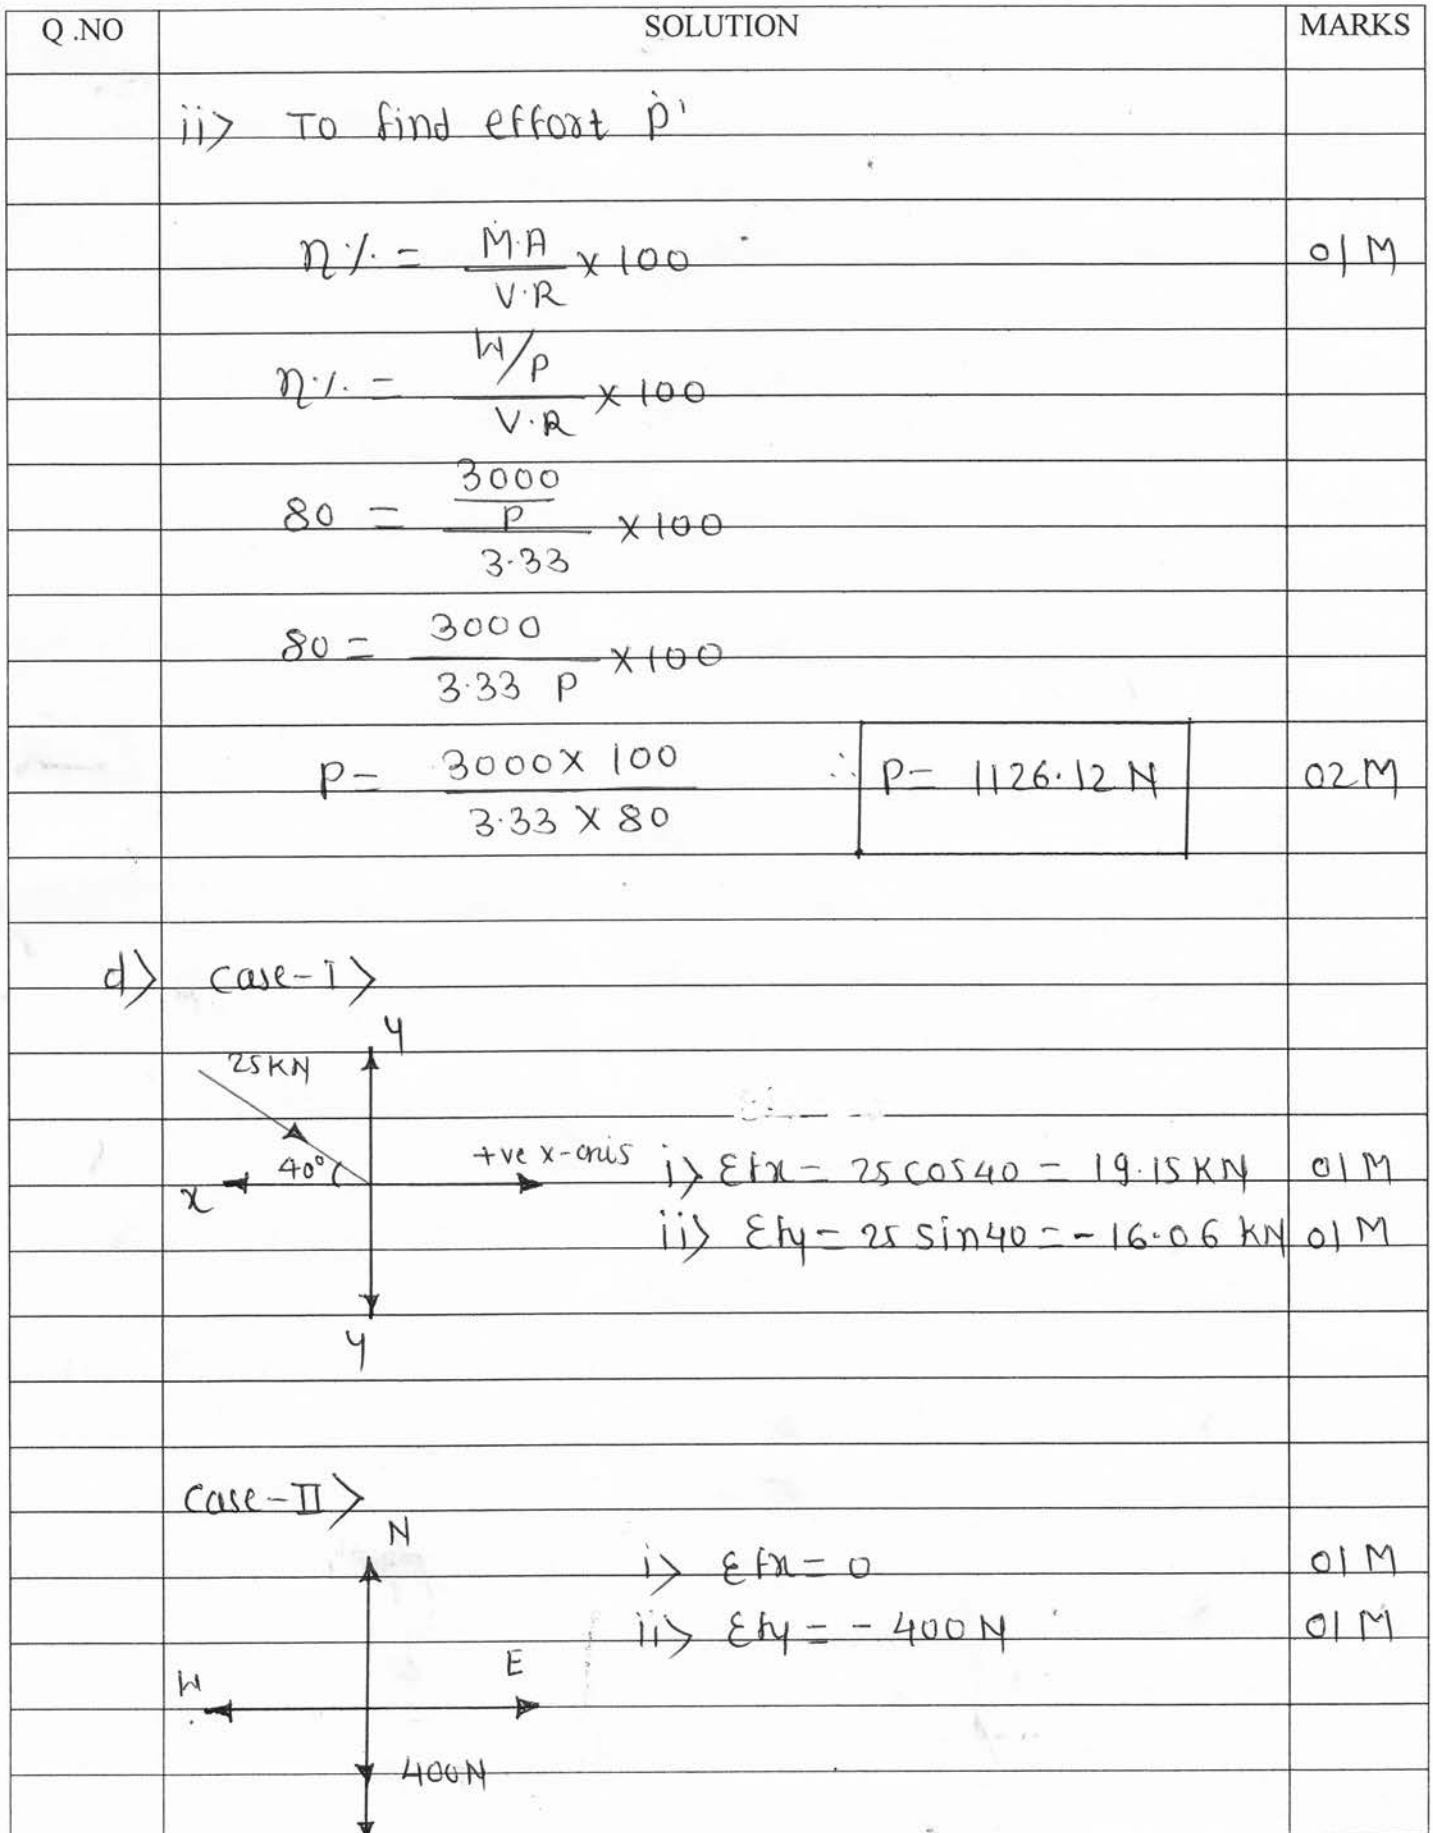 Q .NO SOLUTION MARKS
ii> To find effort 'P'
η% = M.A / V.R × 100 01 M
η% = W/P / V.R × 100
80 = 3000 / P / 3.33 × 100
80 = 3000 / 3.33 P × 100
P = 3000 × 100 / 3.33 × 80 ∴ P = 1126.12 N 02 M
d> case-I>
y
25KN
40°
x
+ve x-axis
i> Σfx = 25 cos40 = 19.15 KN 01 M
ii> Σfy = 25 sin40 = - 16.06 KN 01 M
y
case-II>
N
i> Σfx = 0 01 M
ii> Σfy = - 400 N 01 M
W
E
400N